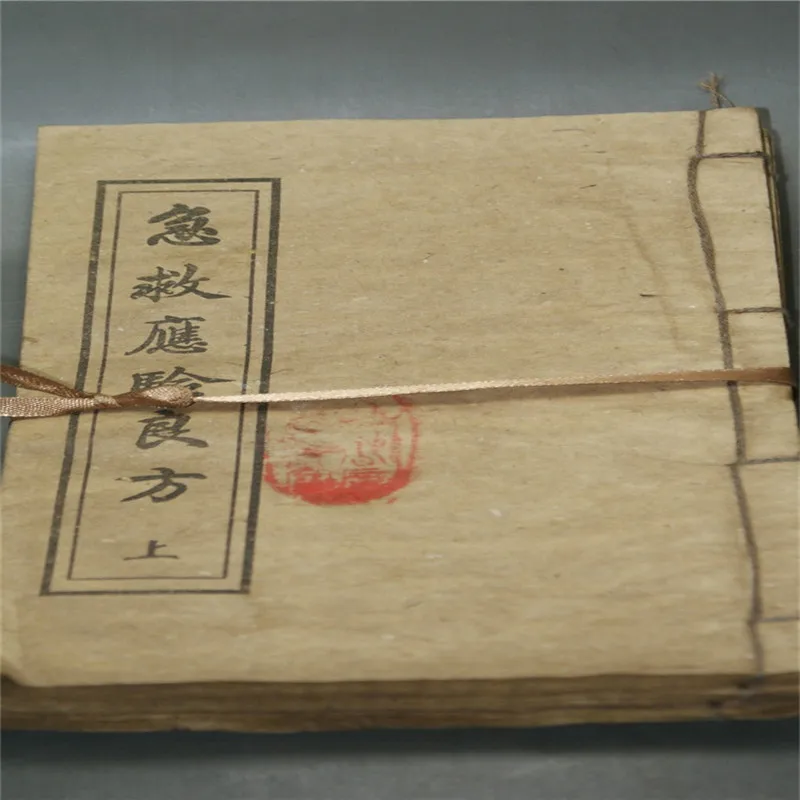 急救應驗良方
上